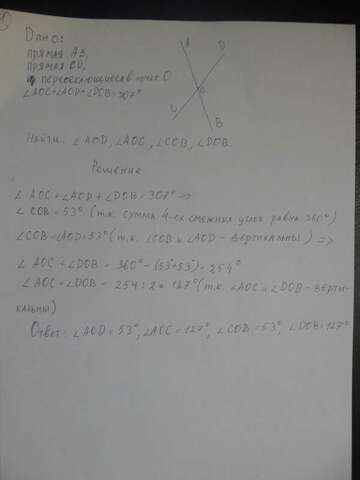 Дано:
прямая AB,
прямая CD,
пересекающиеся в точке O
∠AOC+∠AOD+∠DOB=307°
A
D
O
C
B
Найти: ∠AOD, ∠AOC, ∠COB, ∠DOB.
Решение
∠AOC+∠AOD+∠DOB=307° =>
∠COB=53° (т.к. сумма 4-ех смежных углов равна 360°)
∠COB=∠AOD=53° (т.к. ∠COB и ∠AOD - вертикальны) =>
∠AOC+∠DOB=360°-(53°+53°)=254°
∠AOC=∠DOB=254:2=127° (т.к. ∠AOC и ∠DOB - верти-
кальны)
Ответ: ∠AOD=53°, ∠AOC=127°, ∠COB=53°, ∠DOB=127°